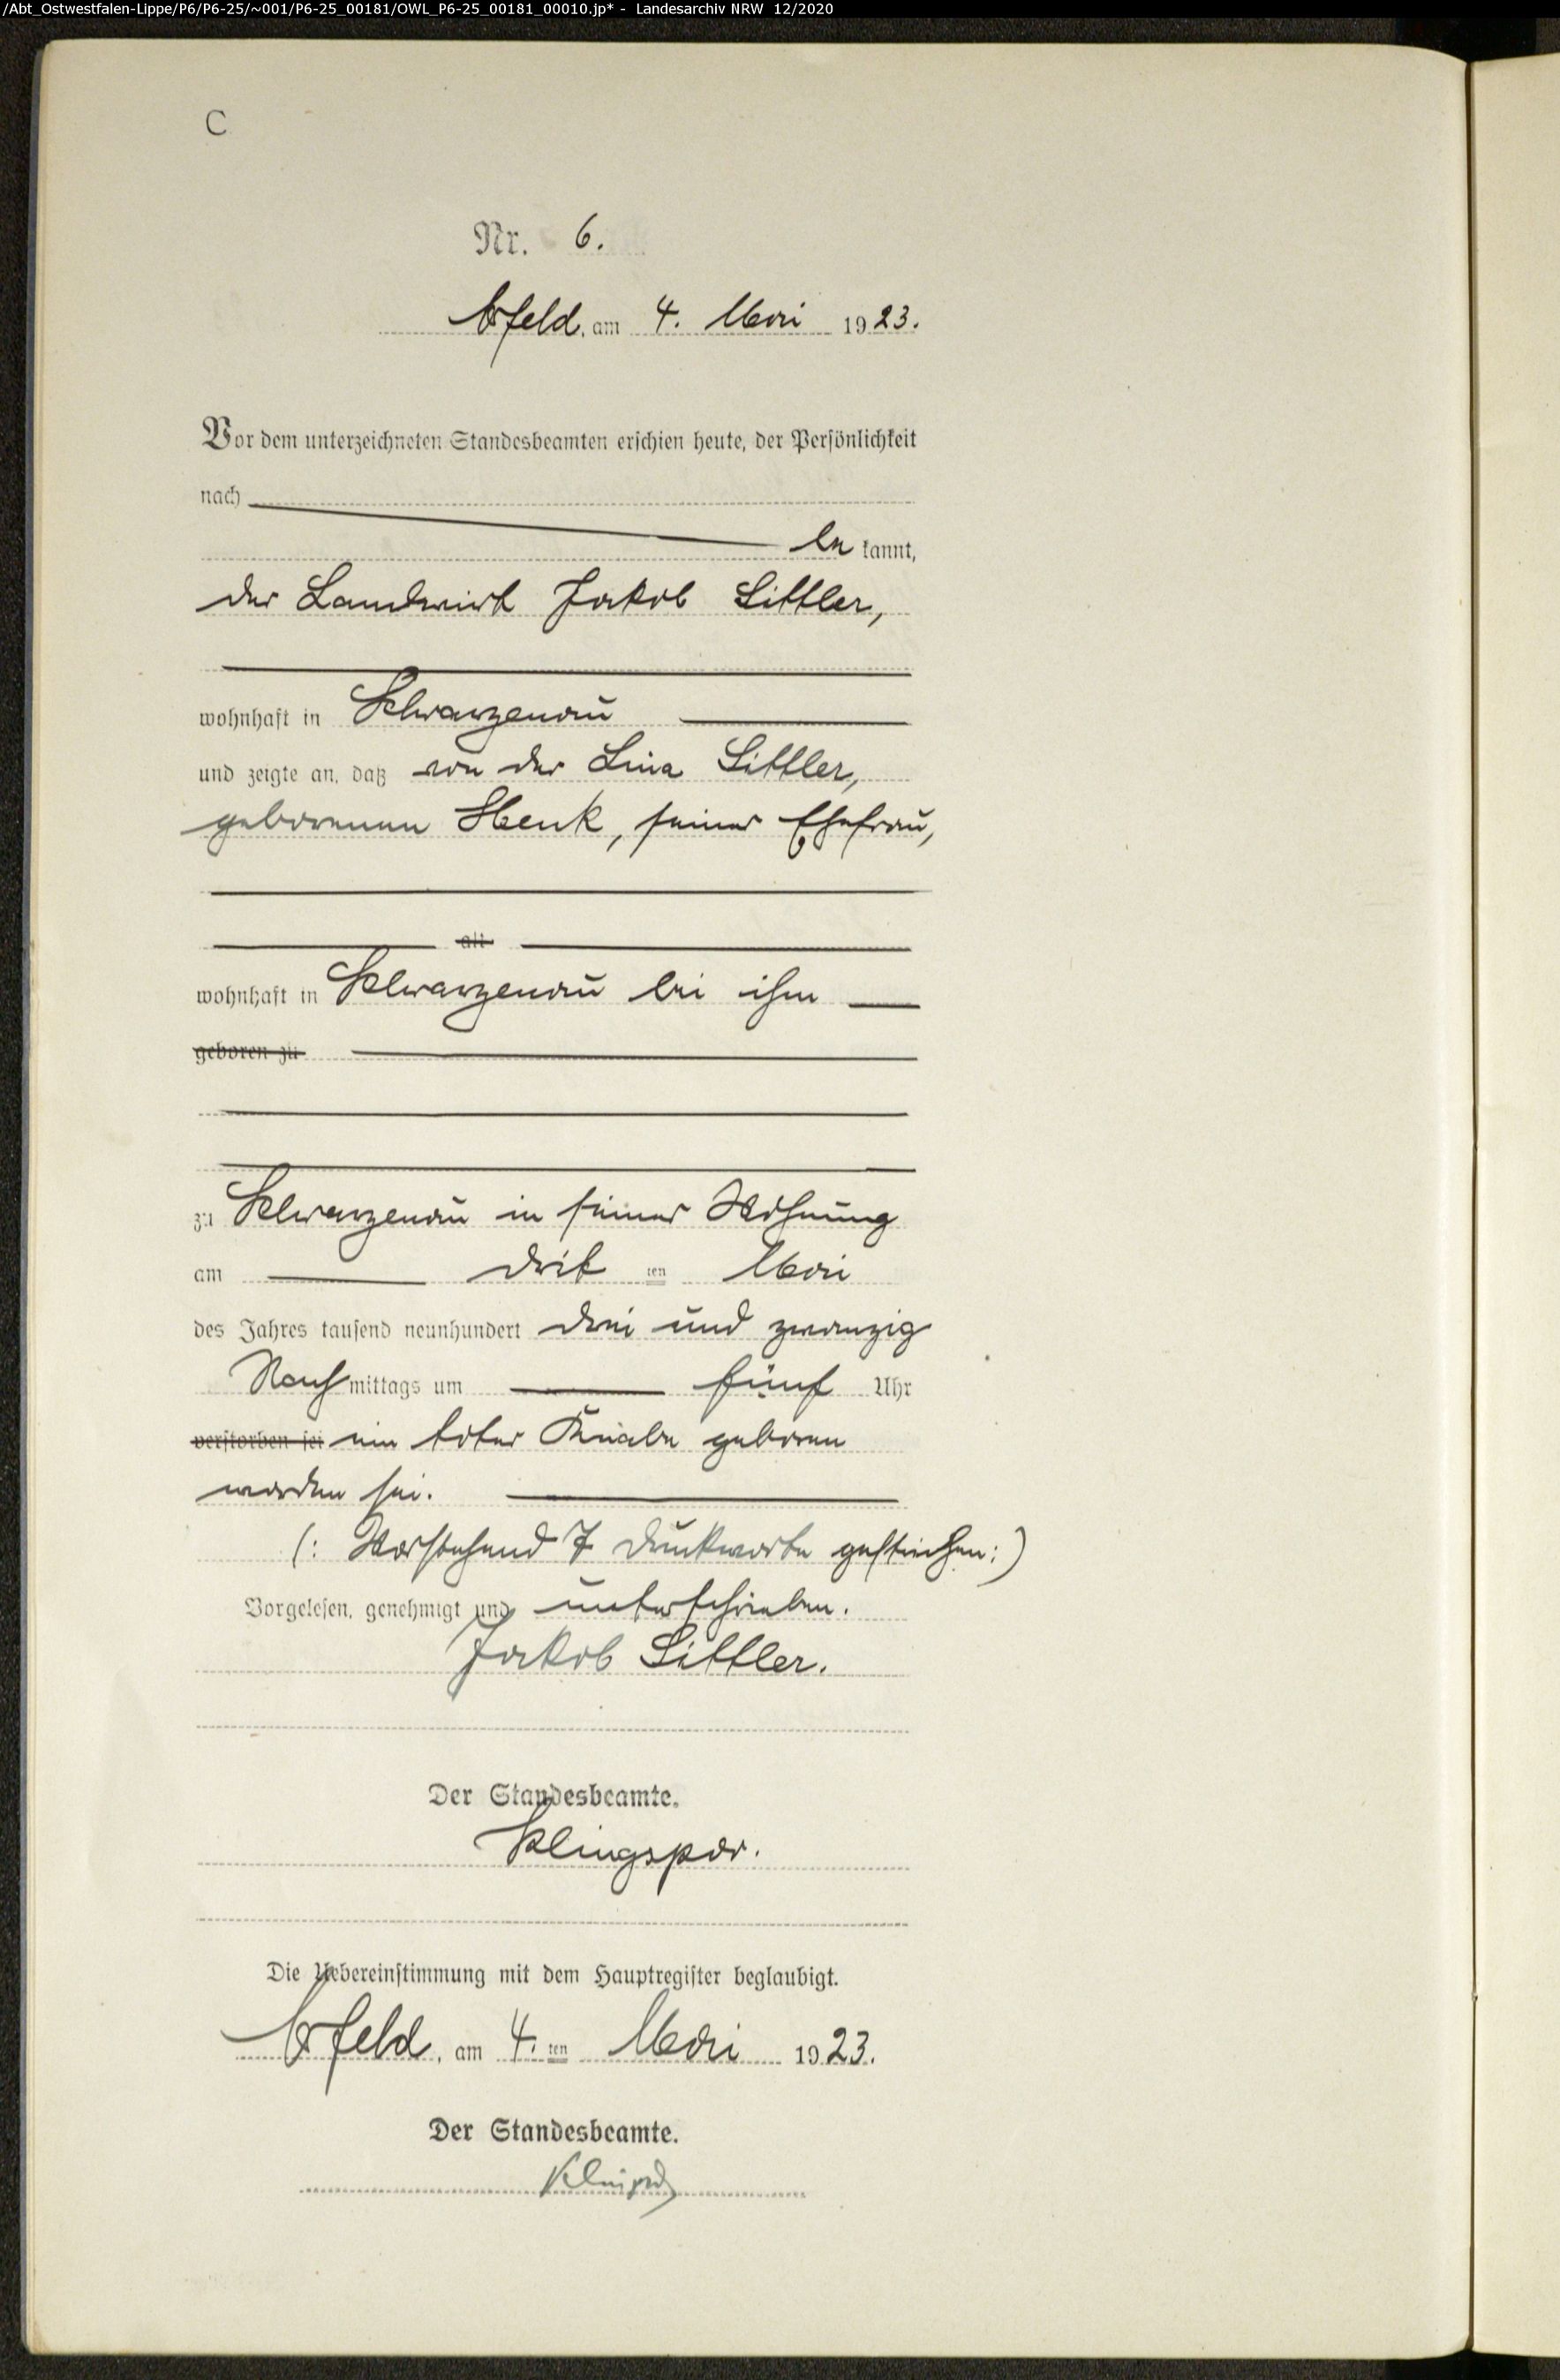 /Abt_Ostwestfalen-Lippe/P6/P6-25/~001/P6-25_00181/OWL_P6-25_00181_00010.jp* - Landesarchiv NRW 12/2020
C
Nr. 6.
Arfeld, am 4. Mai 1923.
Vor dem unterzeichneten Standesbeamten erschien heute, der Persönlichkeit
nach
be kannt,
der Landwirt Jakob Sittler,
wohnhaft in Schwarzenau
und zeigte an, daß von der Lina Sittler,
geborenen Henk, seiner Ehefrau,
alt
wohnhaft in Schwarzenau bei ihm
geboren zu
zu Schwarzenau in seiner Wohnung
am drit ten Mai
des Jahres tausend neunhundert drei und zwanzig
Nach mittags um fünf Uhr
verstorben sei ein toter Knabe geboren
worden sei.
(: Vorstehend 7 Druckworte gestrichen :)
Vorgelesen, genehmigt und unterschrieben.
Jakob Sittler.
Der Standesbeamte.
Klingspor.
Die Uebereinstimmung mit dem Hauptregister beglaubigt.
Arfeld, am 4. ten Mai 1923.
Der Standesbeamte.
Klingspor